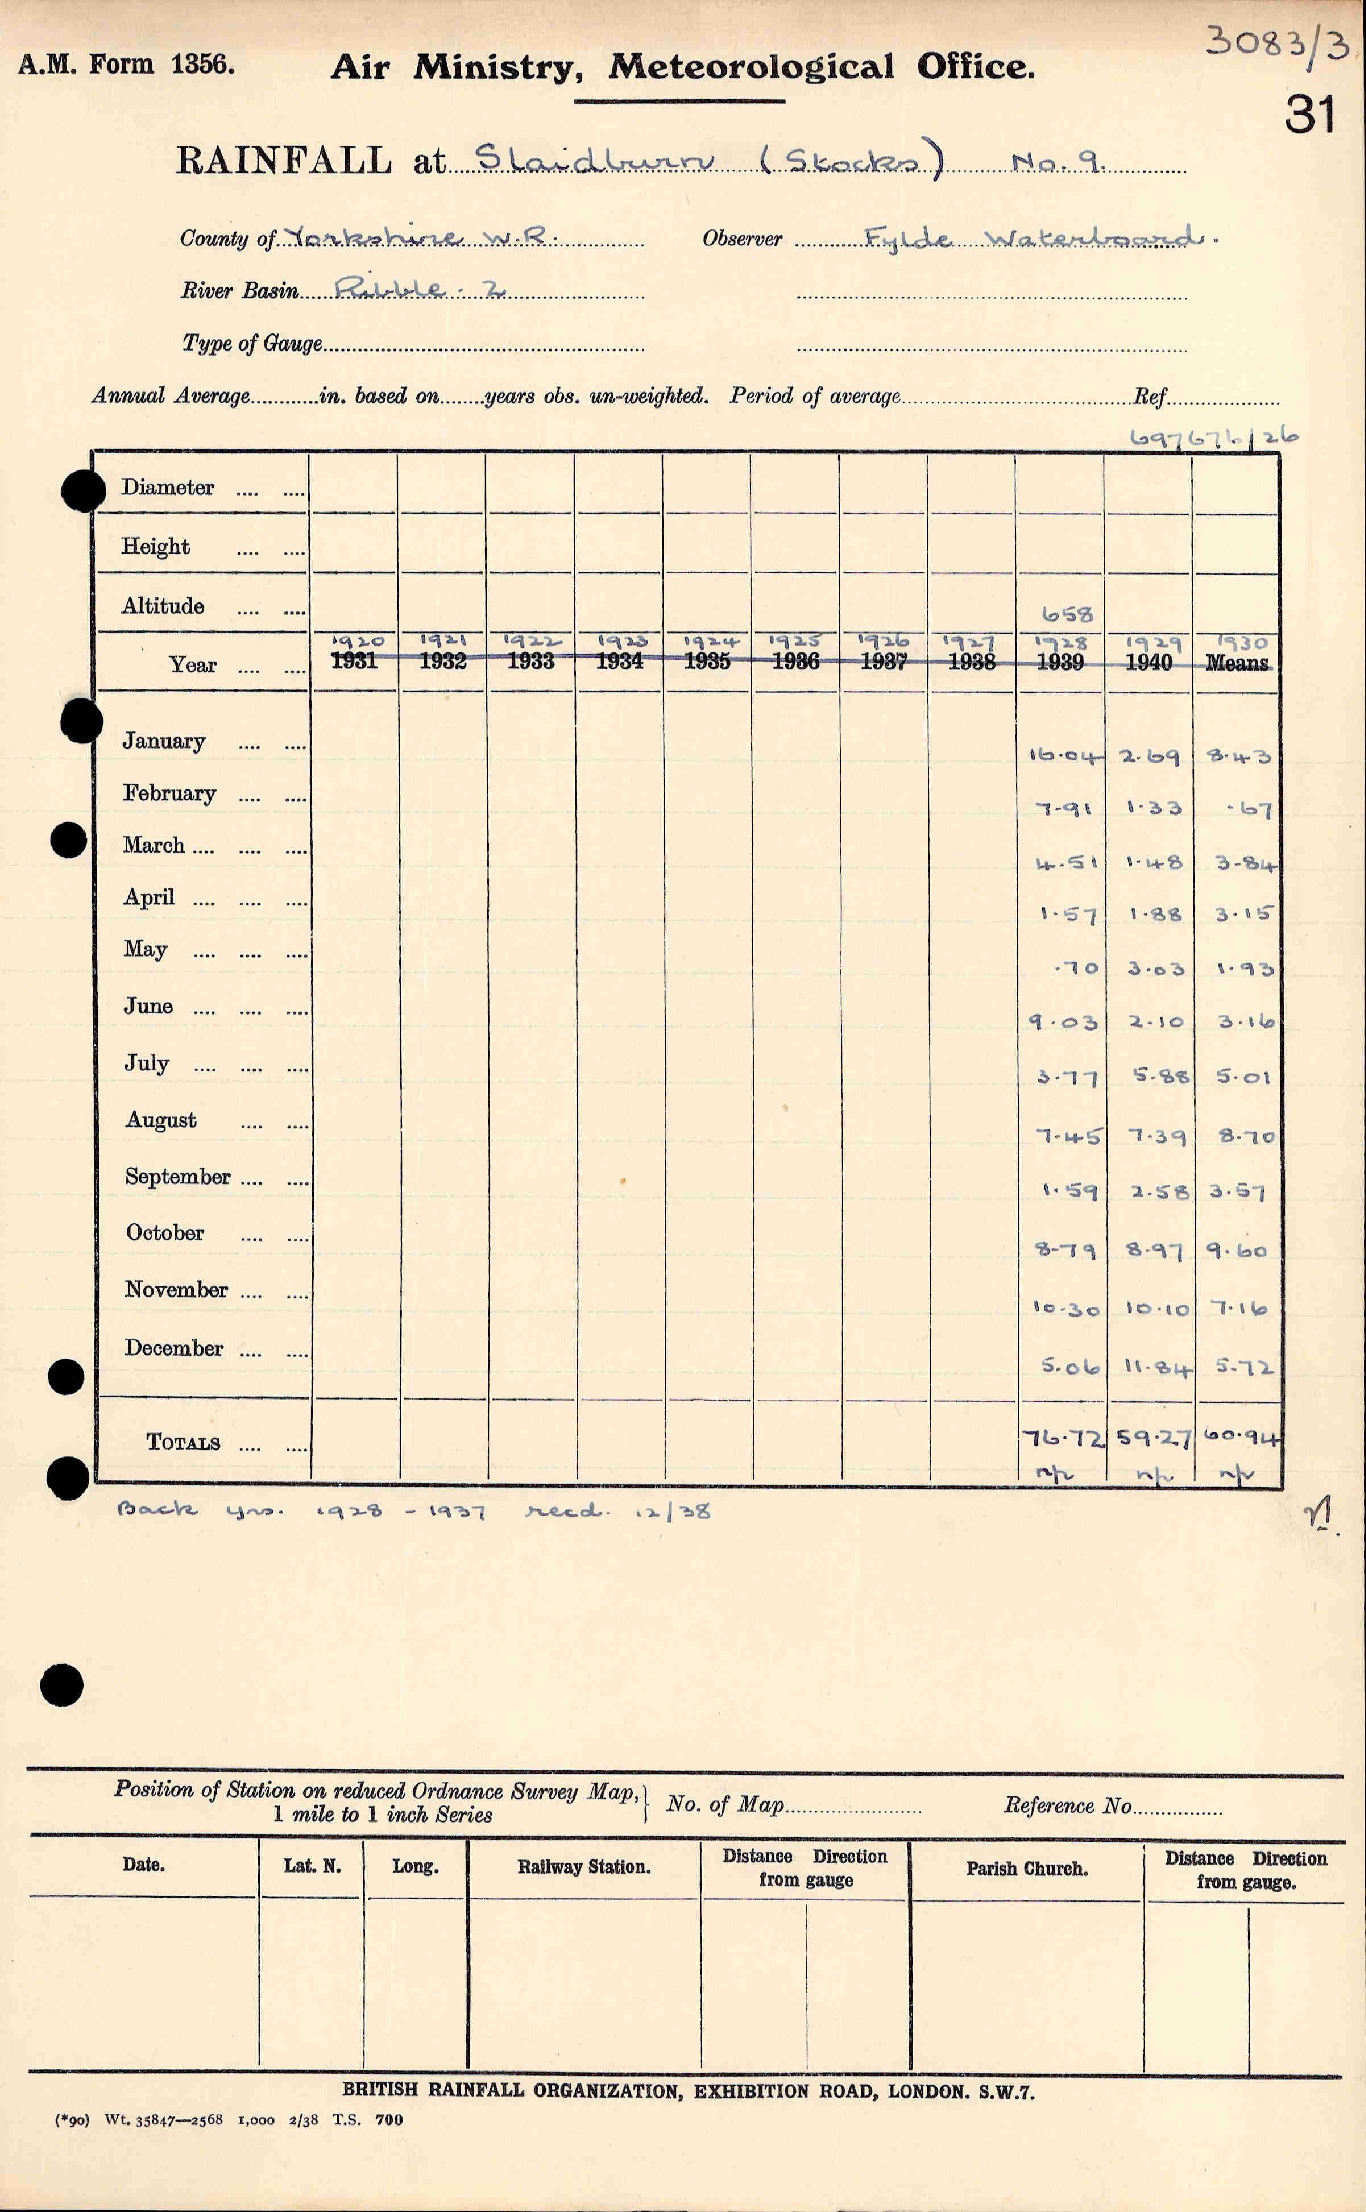 3083/3
A.M. Form 1356. Air Ministry, Meteorological Office.
31
RAINFALL at Slaidburn (Stocks) No. 9.
County of Yorkshire W.R. Observer Fylde Waterboard.
River Basin Ribble - 2
Type of Gauge
Annual Average in. based on years obs. un-weighted. Period of average Ref.
697676/26
Diameter .... ....
Height .... ....
Altitude .... .... 658
1920 1921 1922 1923 1924 1925 1926 1927 1928 1929 1930
Year .... .... 1931 1932 1933 1934 1935 1936 1937 1938 1939 1940 Means
January .... .... 16.04 2.69 8.43
February .... .... 7.91 1.33 .67
March .... .... .... 4.51 1.48 3.84
April .... .... .... 1.57 1.88 3.15
May .... .... .... .70 3.03 1.93
June .... .... .... 9.03 2.10 3.16
July .... .... .... 3.77 5.88 5.01
August .... .... 7.45 7.39 8.70
September .... .... 1.59 2.58 3.57
October .... .... 8.79 8.97 9.60
November .... .... 10.30 10.10 7.16
December .... .... 5.06 11.84 5.72
TOTALS .... .... 76.72 59.27 60.94
Back yrs. 1928 - 1937 recd. 12/38
Position of Station on reduced Ordnance Survey Map,} No. of Map Reference No.
1 mile to 1 inch Series
Date. Lat. N. Long. Railway Station. Distance Direction from gauge Parish Church. Distance Direction from gauge.
BRITISH RAINFALL ORGANIZATION, EXHIBITION ROAD, LONDON. S.W.7.
(*90) Wt. 35847—2568 1,000 2/38 T.S. 700